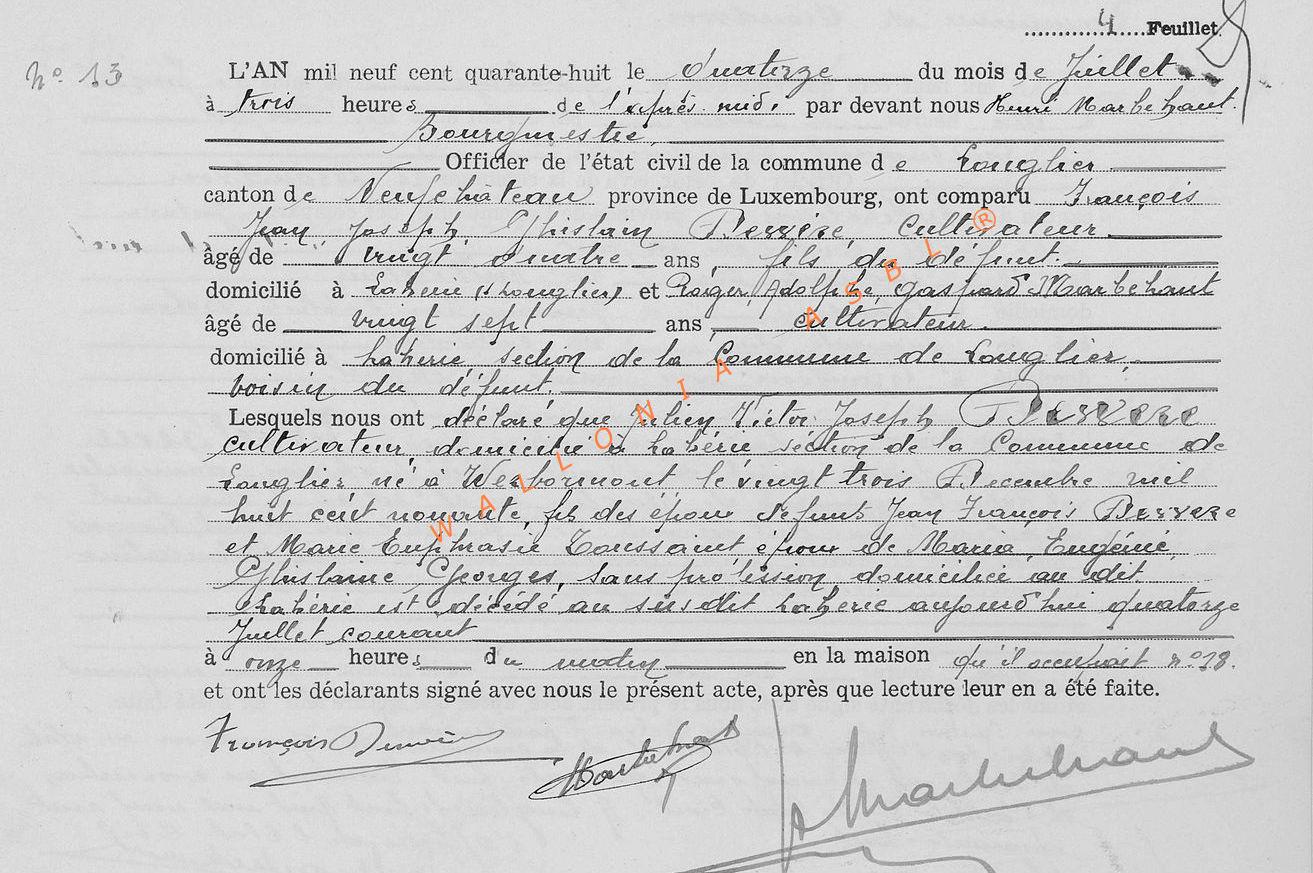 4 Feuillet
N° 13
L'AN mil neuf cent quarante-huit le quatorze du mois de Juillet
à trois heures de l'après midi par devant nous Henri Marbehant
Bourgmestre,
Officier de l'état civil de la commune de Longlier
canton de Neufchâteau province de Luxembourg, ont comparu François
Jean, Joseph, Ghislain, cultivateur
âgé de vingt quatre ans, fils du défunt.
domicilié à Laherie (Longlier) et Roger, Adolphe, Gaspard Marbehant
âgé de vingt sept ans cultivateur.
domicilié à Laherie, section de la Commune de Longlier,
voisin du défunt.
Lesquels nous ont déclaré que Julien Victor Joseph
cultivateur, domicilié à Lahérie section de la Commune de
Longlier né à Werbomont le vingt trois Décembre mil
huit cent nonante, fils des époux défunts Jean François
et Marie Euphrasie Toussaint époux de Maria, Eugénie,
Ghislaine Georges, sans profession domiciliée au dit
Lahérie est décédé au susdit Laherie aujourd'hui quatorze
Juillet courant
à onze heures du matin en la maison qu'il occupait n° 18.
et ont les déclarants signé avec nous le présent acte, après que lecture leur en a été faite.
François
Marbehant
Marbehant
WALLONIA ASBL ®